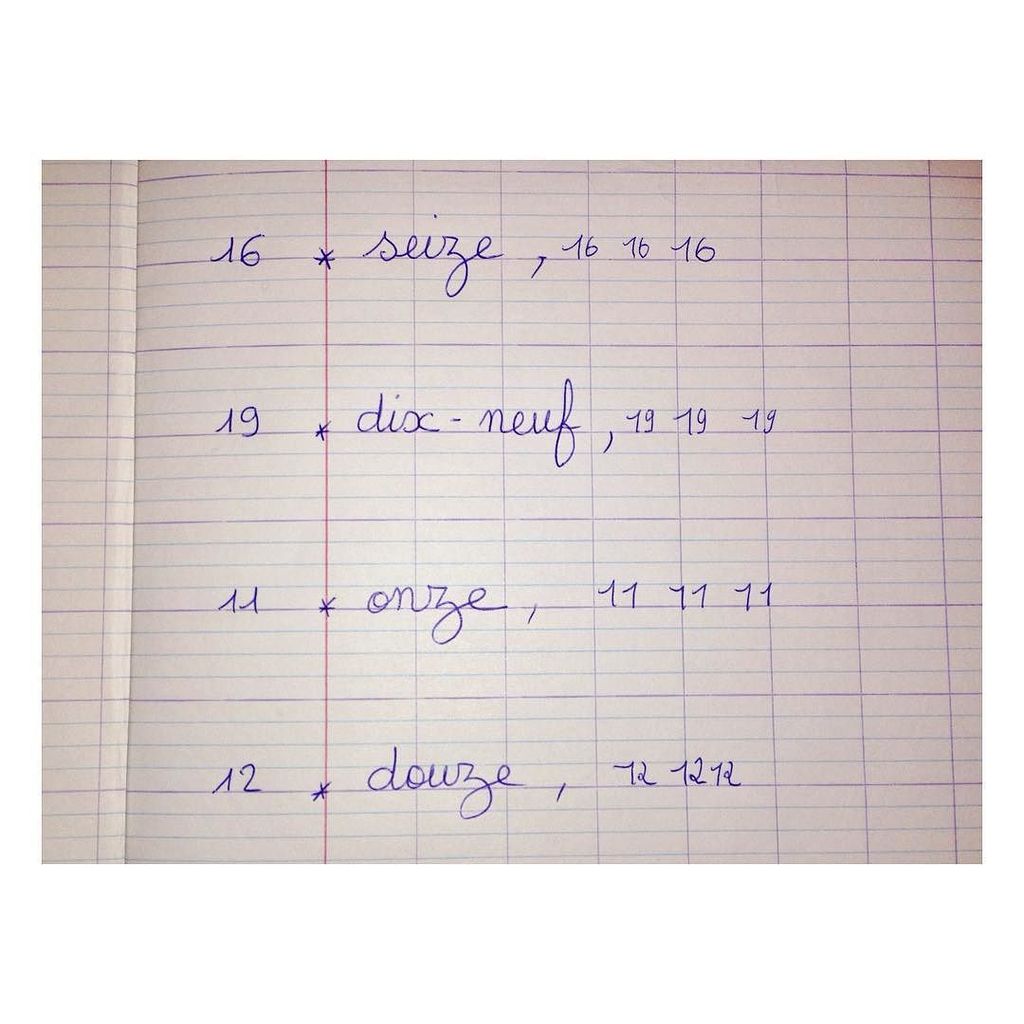 16 * seize , 16 16 16
19 * dix-neuf , 19 19 19
11 * onze , 11 11 11
12 * douze , 12 12 12